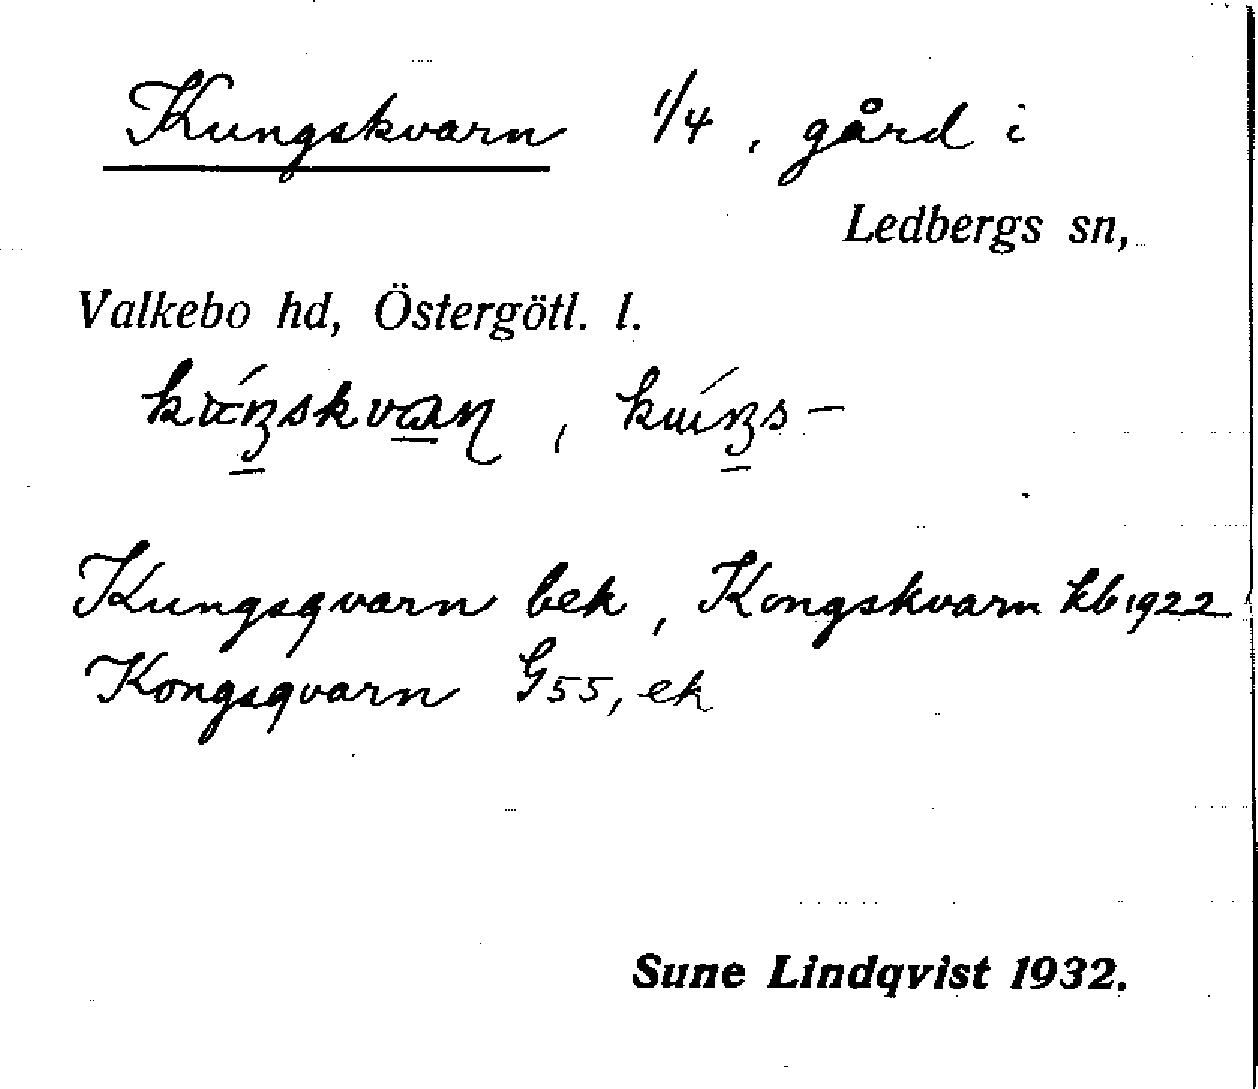 Kungskvarn 1/4, gård i
Ledbergs sn,
Valkebo hd, Östergötl. l.
Kungsqvarn bek, Kongskvarn kb 1922
Kongsqvarn G55, ek
Sune Lindqvist 1932.